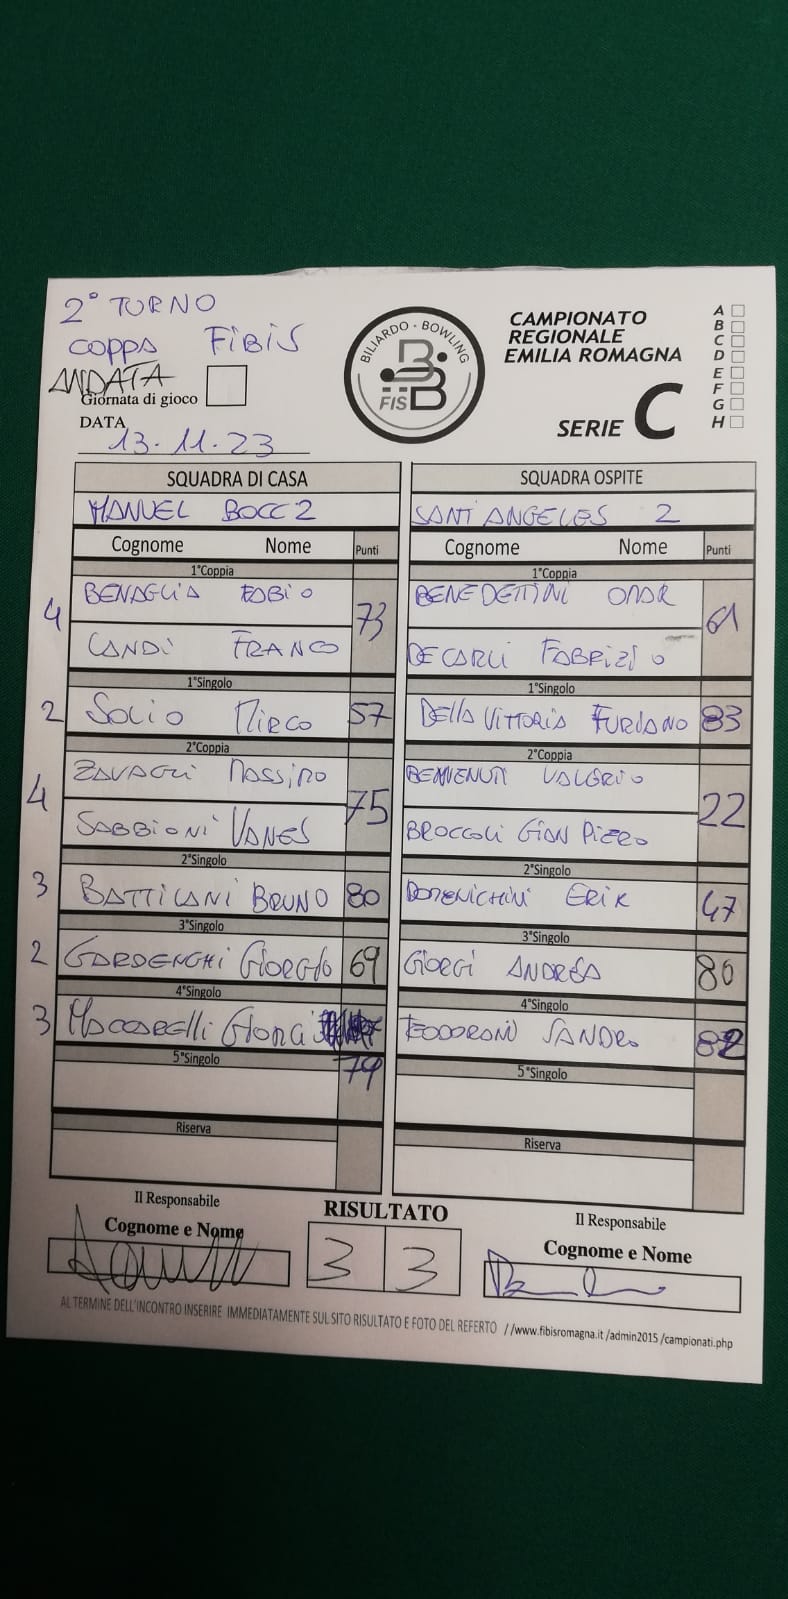 2° TURNO
COPPA FIBIS
ANDATA
Giornata di gioco
DATA
13.11.23
BILIARDO · BOWLING
FISBB
CAMPIONATO
REGIONALE
EMILIA ROMAGNA
SERIE C
A
B
C
D
E
F
G
H
SQUADRA DI CASA SQUADRA OSPITE
MANUEL BOCC 2 SANT ANGELES 2
Cognome Nome Punti Cognome Nome Punti
1°Coppia 1°Coppia
4 BENAGLIA FABIO 73 BENEDETTINI OMAR 61
CANDI FRANCO DECARLI FABRIZIO
1°Singolo 1°Singolo
2 SOLIO MIRCO 57 DELLA VITTORIA FURIANO 83
2°Coppia 2°Coppia
4 ZAVAGLI MASSIMO 75 BENVENUTI VALERIO 22
SABBIONI VANES BROCCOLI GIAN PIERO
2°Singolo 2°Singolo
3 BATTILANI BRUNO 80 DOMENICHINI ERIK 47
3°Singolo 3°Singolo
2 GARDENGHI GIORGIO 69 GIORGI ANDREA 80
4°Singolo 4°Singolo
3 MACCARELLI TEODORANI SANDRO 82
5°Singolo 79 5°Singolo
Riserva Riserva
Il Responsabile RISULTATO Il Responsabile
Cognome e Nome 3 3 Cognome e Nome
AL TERMINE DELL'INCONTRO INSERIRE IMMEDIATAMENTE SUL SITO RISULTATO E FOTO DEL REFERTO //www.fibisromagna.it /admin2015 /campionati.php